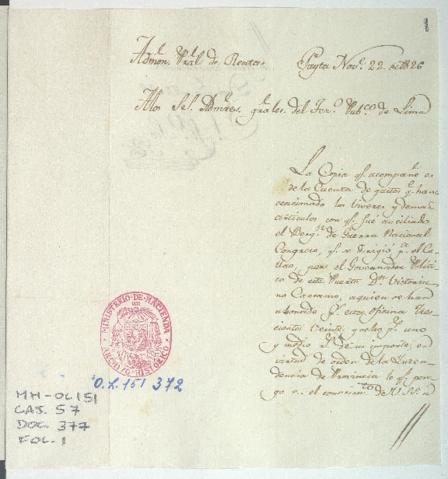 Admon. Pral. de Rentas.
Payta Nov.e 22. de 1826
A los Ses. Admres. grales. del Tes.o Pub.co de Lima
La Copia q.e acompaño es
de la Cuenta de gastos q.e han
ocasionado los viveres y demas
articulos con q.e fué auxiliado
el Berg.n de Guerra Nacional
Congreso, q.e se dirigió p.a el Ca-
llao, por el Governador Politi-
co de este Puerto Dn.
no Caceano, a quien se han
abonado p.r esta oficina tres-
cientos veinte, y ocho p.s uno
y medio r.l de su importe, en
virtud de orden de la Inten-
dencia de Provincia lo q.e pon-
go en el conocim.to de U.S. a
MINISTERIO DE HACIENDA
ARCHIVO HISTORICO
O.L. 151 372
MH-OL151
CAJ. 57
DOC. 377
FOL. 1